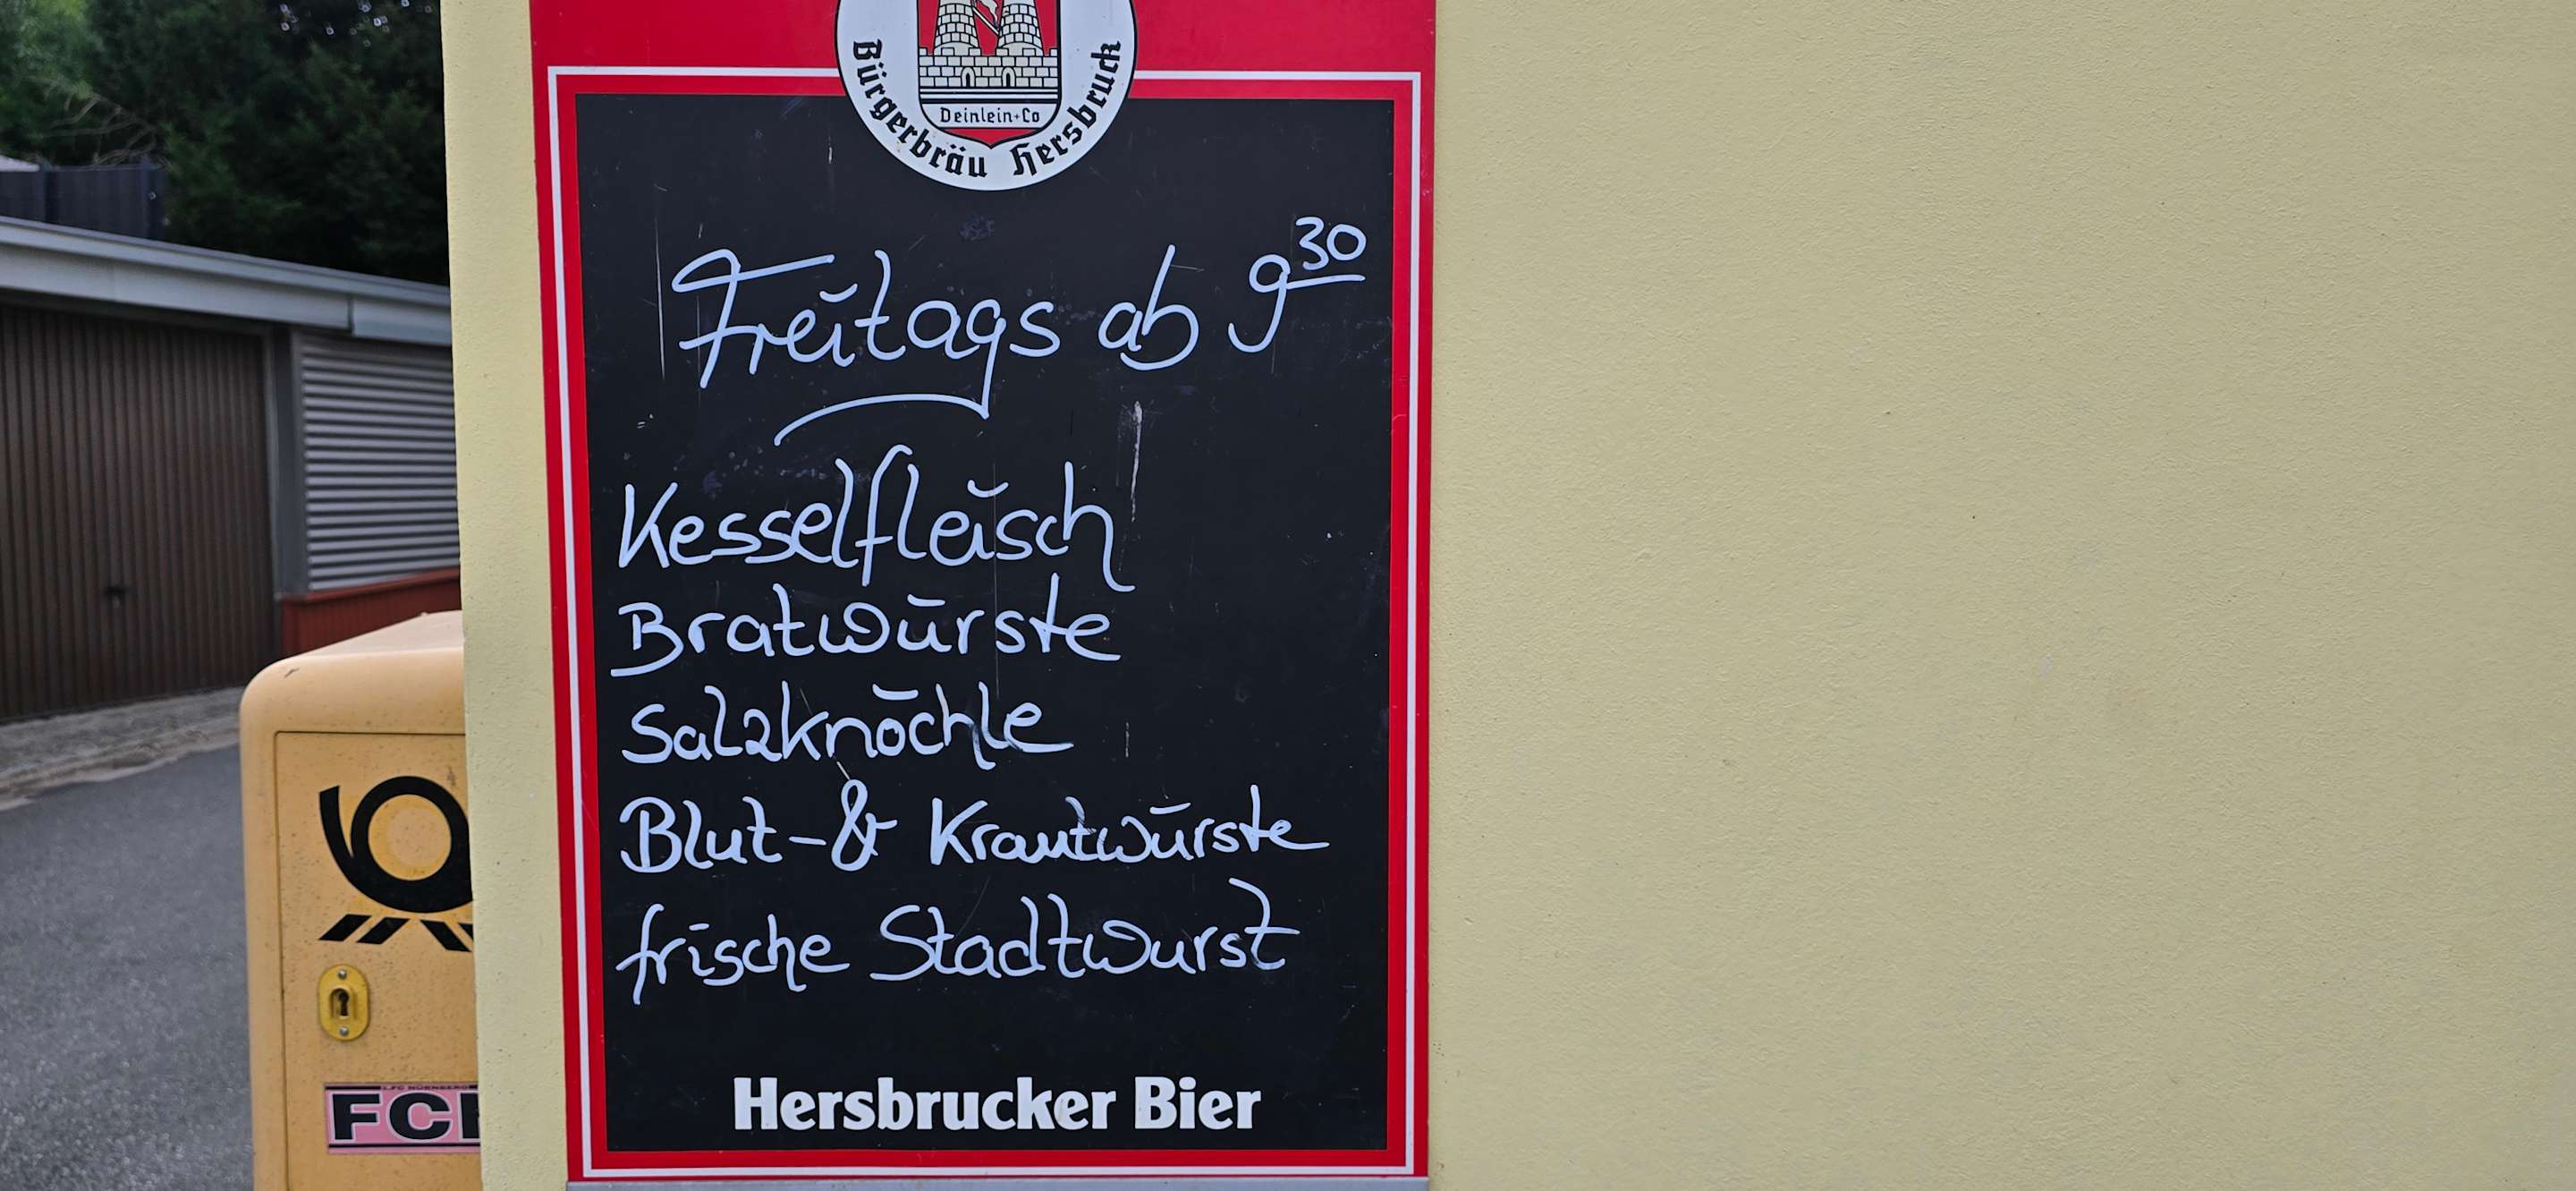 Deinlein+Co
Bürgerbräu Hersbruck
Freitags ab 9 30
Kesselfleisch
Bratwürste
Salzknöchle
Blut-& Krautwürste
frische Stadtwurst
Hersbrucker Bier
1.FC NÜRNBERG
FC